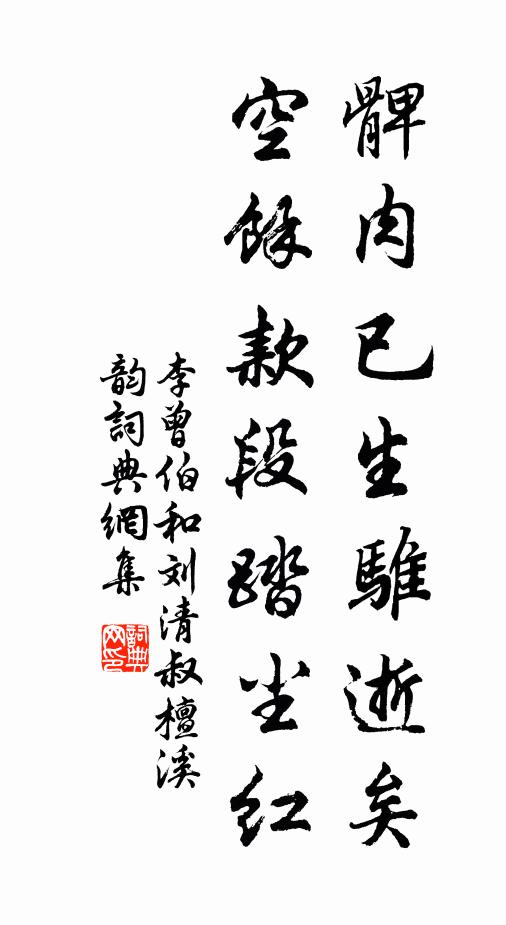 髀肉已生騅逝矣
空餘款段踏尘红
李曾伯和刘清叔檀溪
韵詞典網集
詞典网印